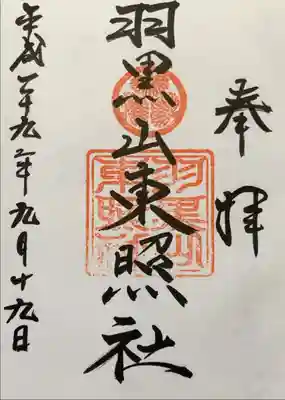 奉拝
羽黒山東照社
平成二十九年九月十九日